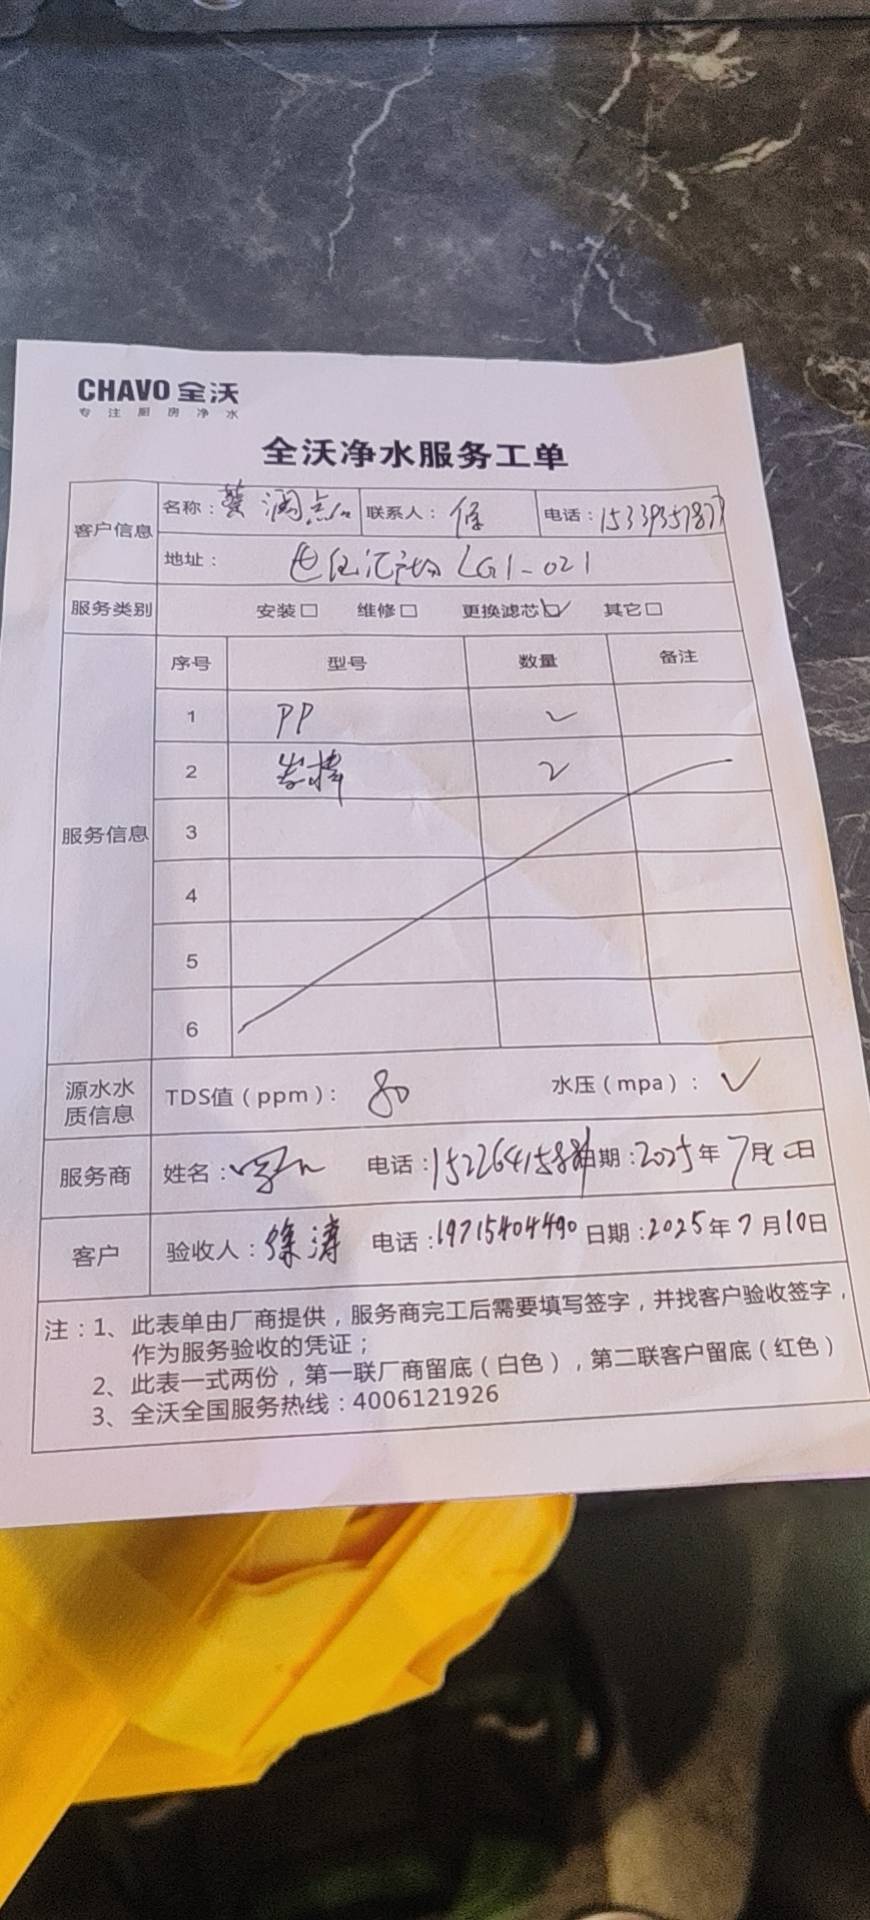 CHAVO 全沃
专注厨房净水
全沃净水服务工单
客户信息 名称: 点 联系人: 电话:15339357877
地址: LG1-021
服务类别 安装□ 维修□ 更换滤芯☑ 其它□
服务信息 序号 型号 数量 备注
1 PP ✓
2 ✓
3
4
5
6
源水水质信息 TDS值(ppm): 80 水压(mpa): ✓
服务商 姓名: 电话: 日期:2025年7月10日
客户 验收人:徐涛 电话:19715404490 日期:2025年7月10日
注:1、此表单由厂商提供,服务商完工后需要填写签字,并找客户验收签字,
作为服务验收的凭证;
2、此表一式两份,第一联厂商留底(白色),第二联客户留底(红色)
3、全沃全国服务热线:4006121926